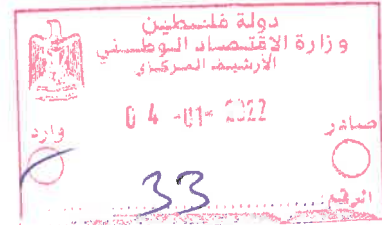 دولة فلسطين
وزارة الاقتصاد الوطني
الأرشيف المركزي
04 -01- 2022
صادر
وارد
الرقم: 33